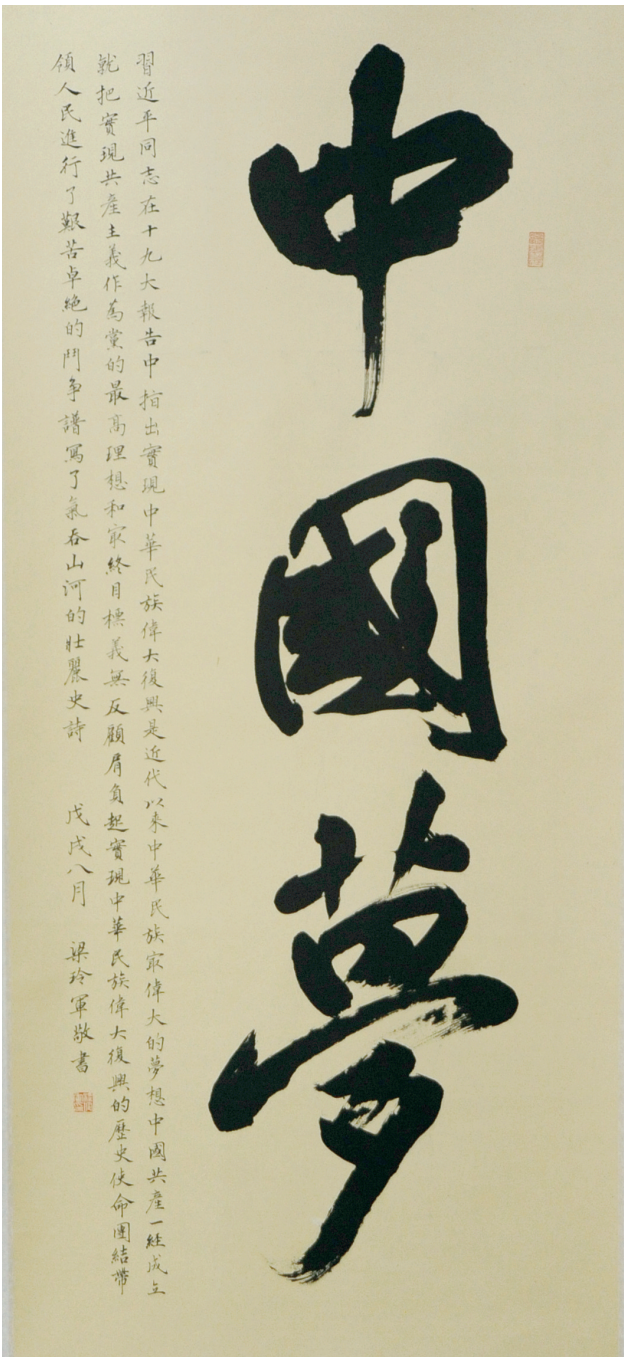 中國夢
習近平同志在十九大報告中指出實現中華民族偉大復興是近代以来中華民族最偉大的夢想中國共產一經成立
就把實現共產主義作為黨的最高理想和最終目標義無反顧肩負起實現中華民族偉大復興的歷史使命團結帶
領人民進行了艱苦卓絶的鬥争譜寫了氣吞山河的壯麗史詩 戊戌八月 梁玲軍敬書